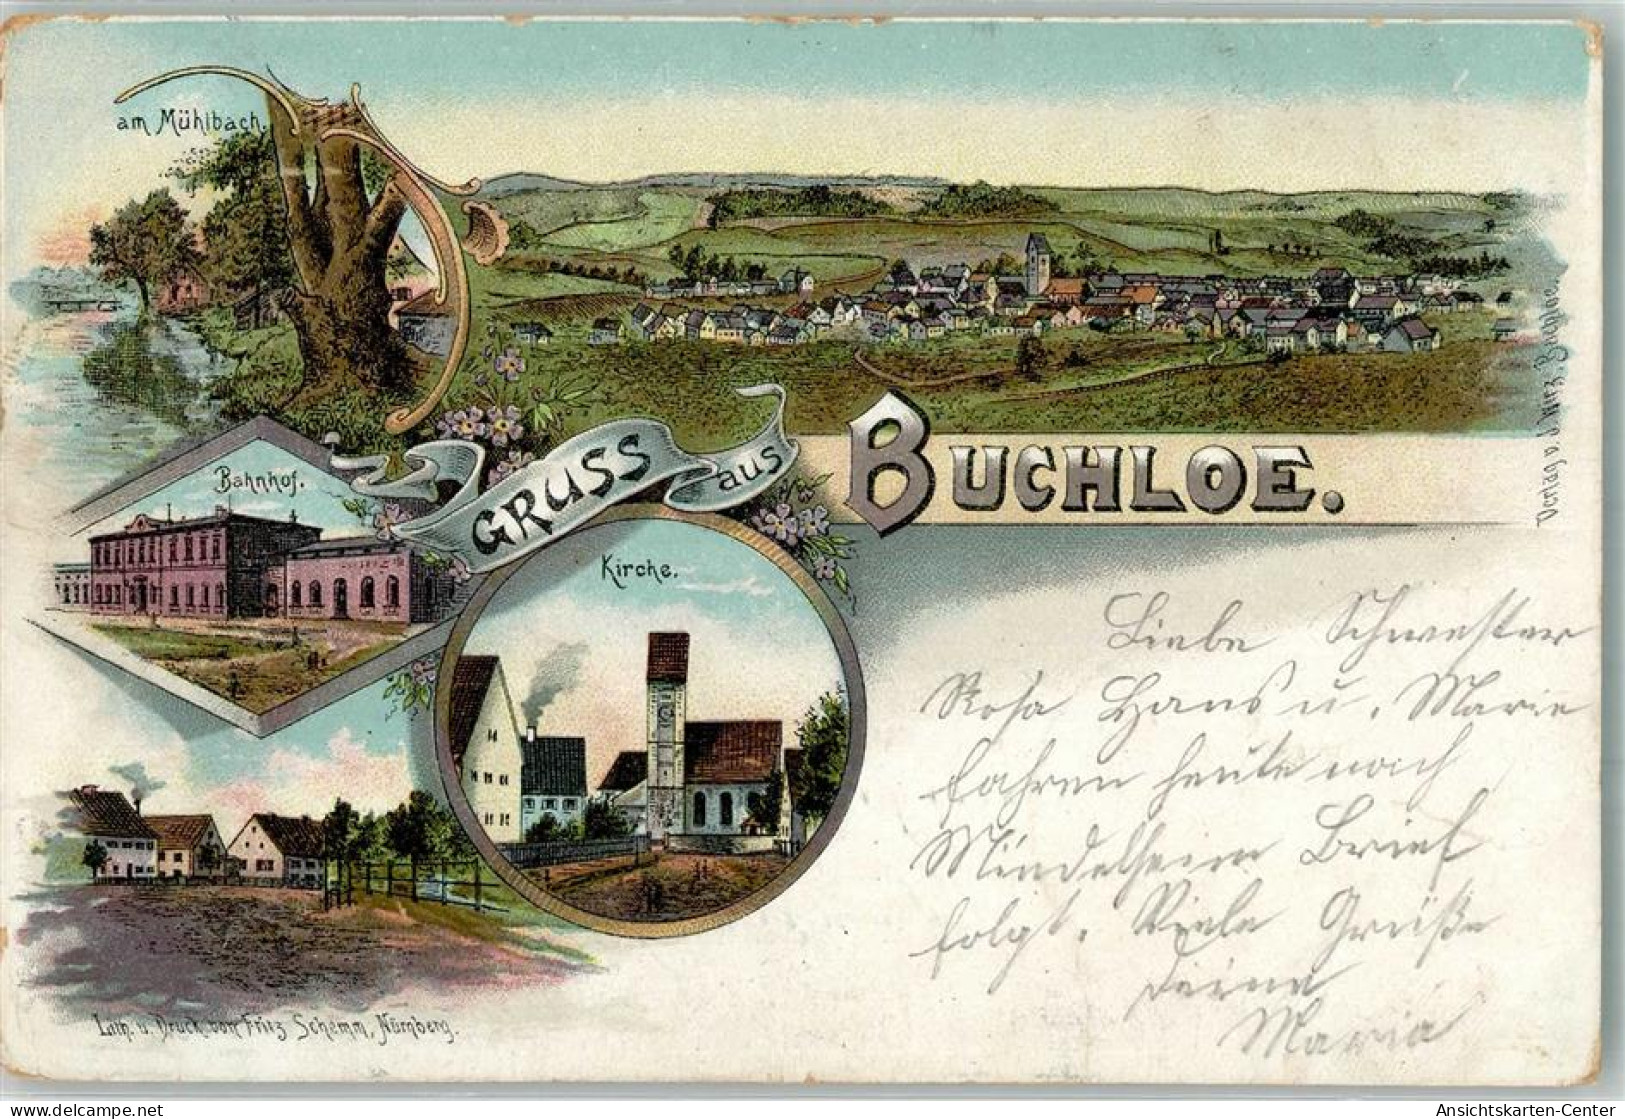 am Mühlbach.
GRUSS aus BUCHLOE.
Bahnhof.
Kirche.
Liebe Schwester
Rosa Hans u. Marie
fahren heute nach
Mindelheim Brief
folgt. Viele Grüße
Deine
Maria
Lith. u. Druck von Fritz Schemm, Nürnberg.
Verlag v. Buchloe.
delcampe.net
Ansichtskarten-Center